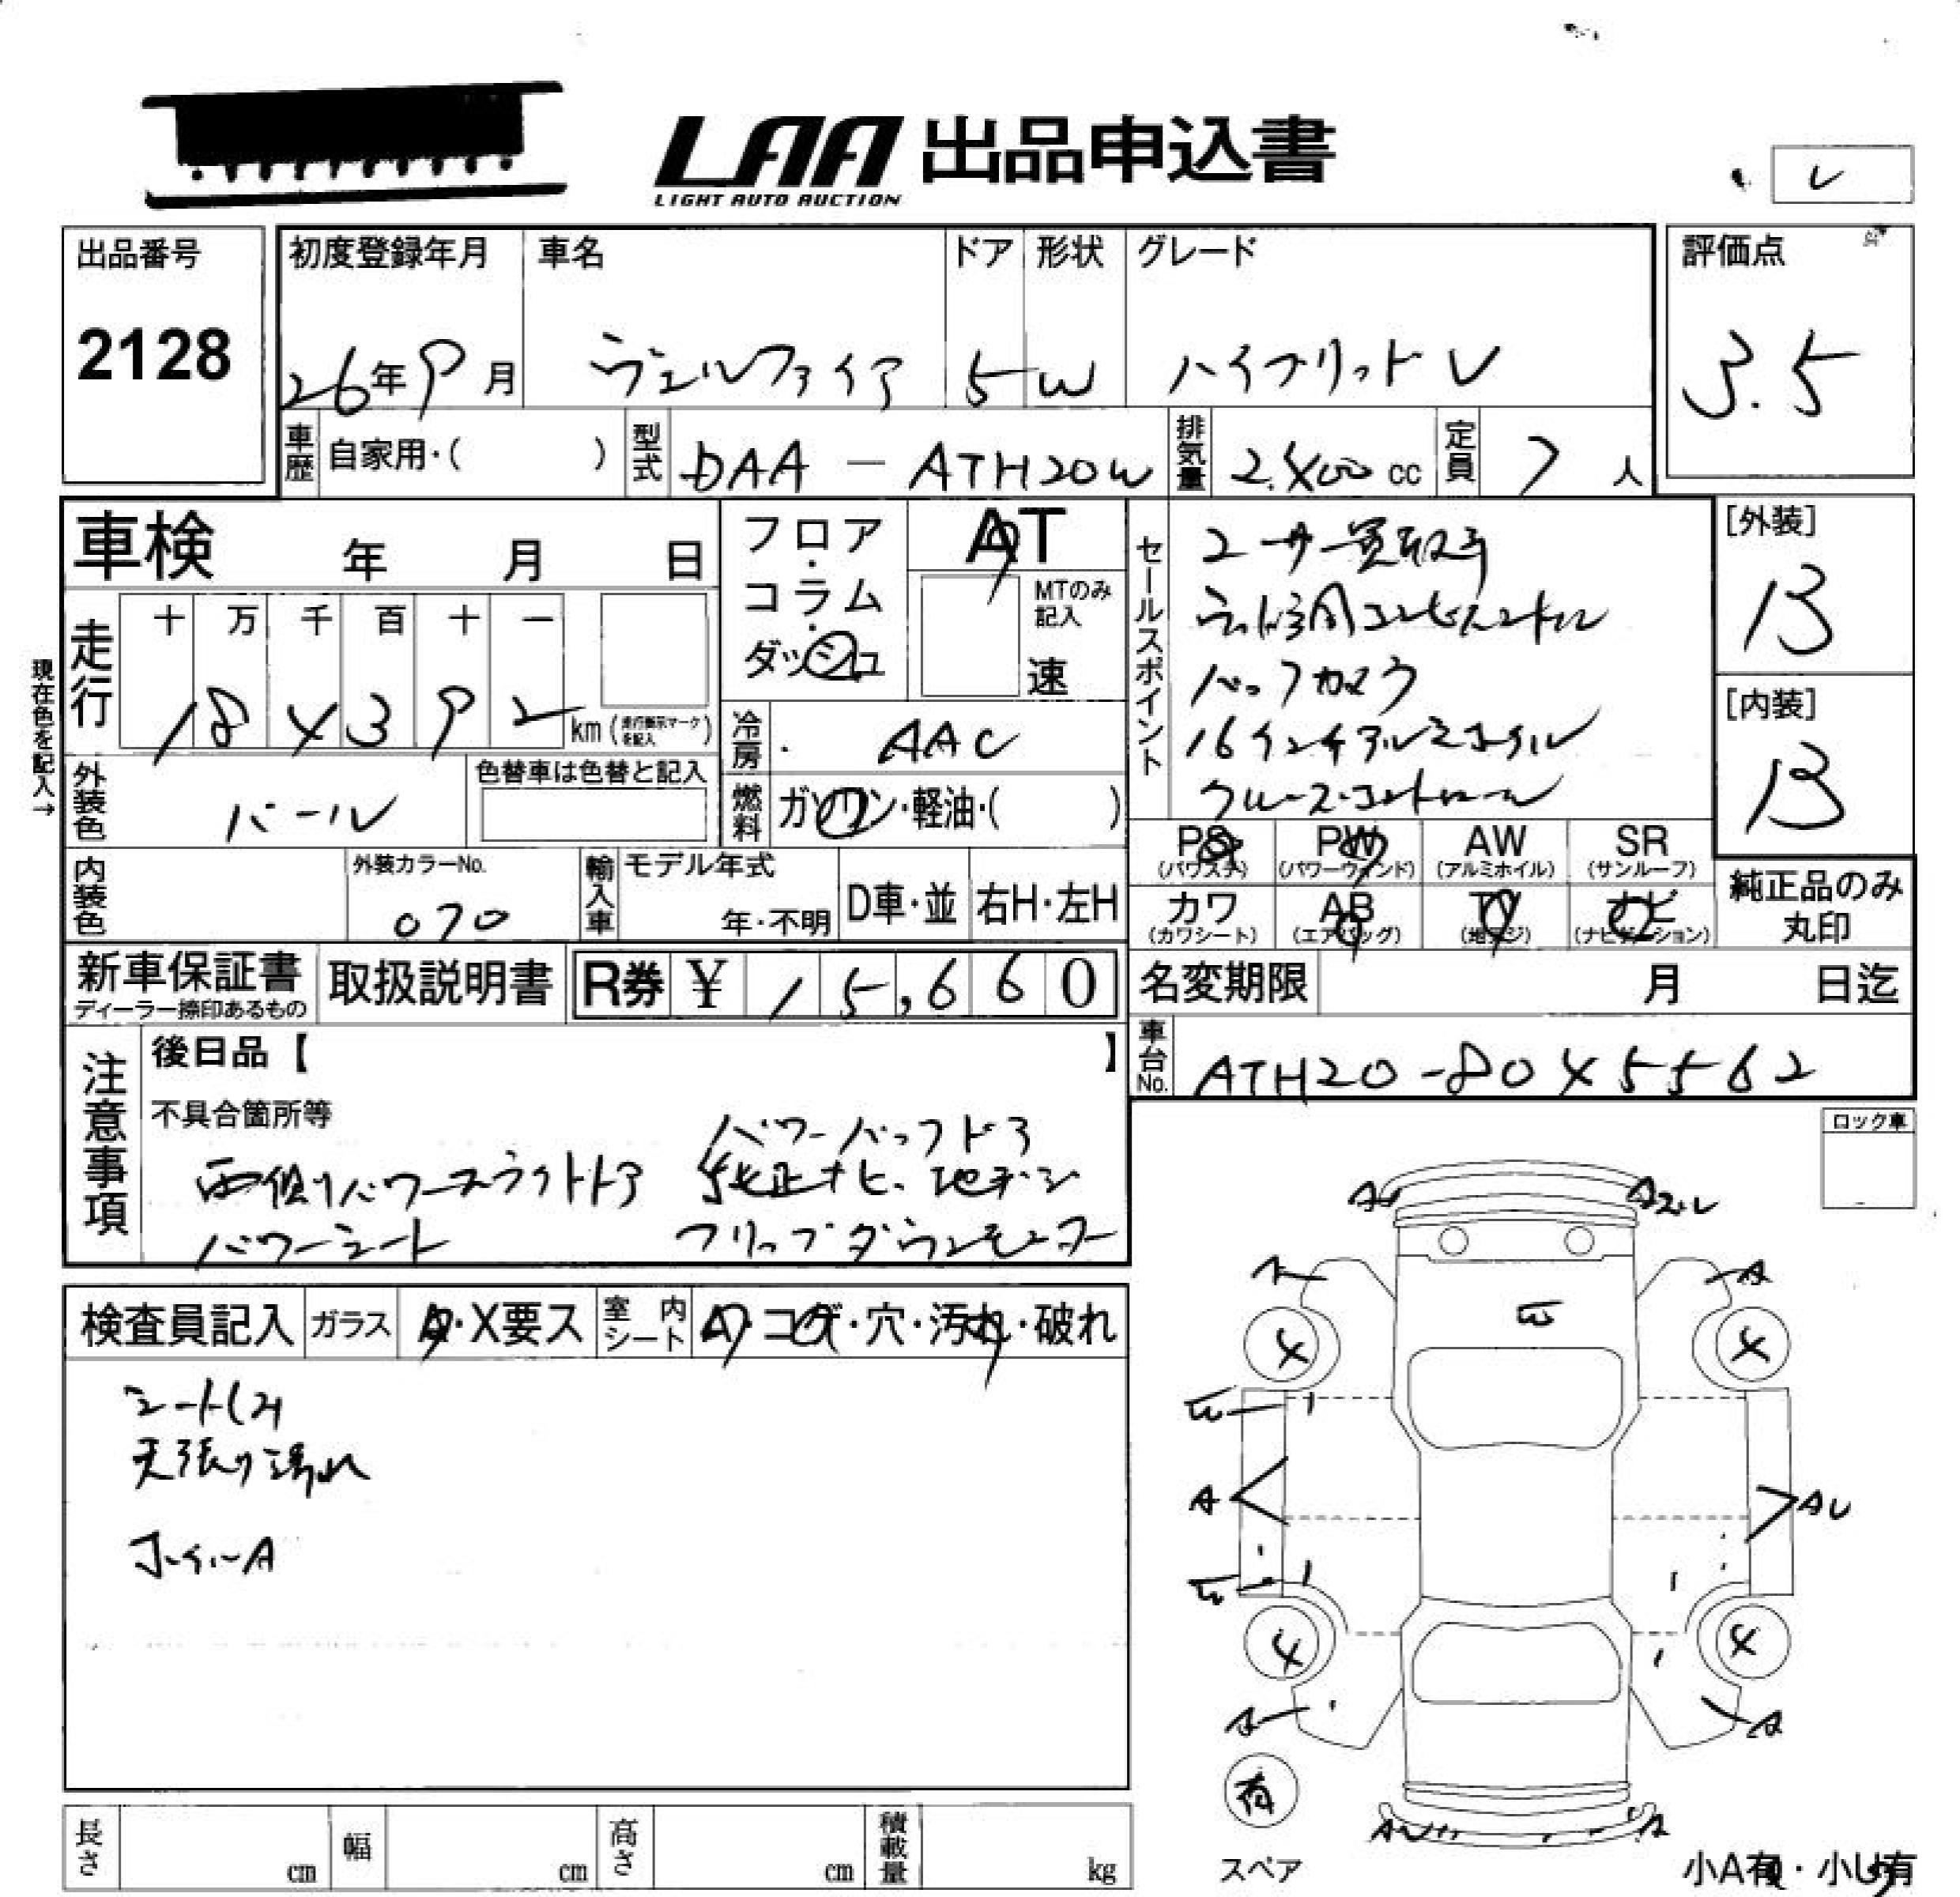 LAA 出品申込書
LIGHT AUTO AUCTION
レ
出品番号
2128
初度登録年月
26年9月
車名
ヴェルファイア
ドア
5
形状
W
グレード
ハイブリットV
評価点
3.5
車歴
自家用・( )
型式
DAA-ATH20W
排気量
2.400cc
定員
7人
車検 年 月 日
フロア・コラム・ダッシュ
AT
MTのみ記入
速
セールスポイント
ユーザー買取車
ウッド調コンビハンドル
バックカメラ
16インチアルミホイル
クルーズ・コントロール
[外装]
B
[内装]
B
現在色を記入→
走行
十 万 千 百 十 一
184392
km(走行表示マークを記入)
冷房
AAC
外装色
パール
色替車は色替と記入
燃料
ガソリン・軽油・( )
PS
(パワステ)
PW
(パワーウィンド)
AW
(アルミホイル)
SR
(サンルーフ)
カワ
(カワシート)
AB
(エアバッグ)
TV
(地デジ)
ナビ
(ナビゲーション)
純正品のみ
丸印
内装色
外装カラーNo.
070
輸入車
モデル年式
年・不明
D車・並
右H・左H
新車保証書
ディーラー捺印あるもの
取扱説明書
R券 ¥15,660
名変期限 月 日迄
車台No.
ATH20-8045562
注意事項
後日品【 】
不具合箇所等
パワーバックドア
両側パワースライドドア 純正ナビ、地デジ
パワーシート フリップダウンモニター
ロック車
検査員記入
ガラス
A・X要ス
室内シート
A・コゲ・穴・汚れ・破れ
シートスレ
天張り汚れ
ホイルA
A
A
A
4
4
A
AU
4
4
A
A
有
スペア
小A有・小U有
長さ cm
幅 cm
高さ cm
積載量 kg